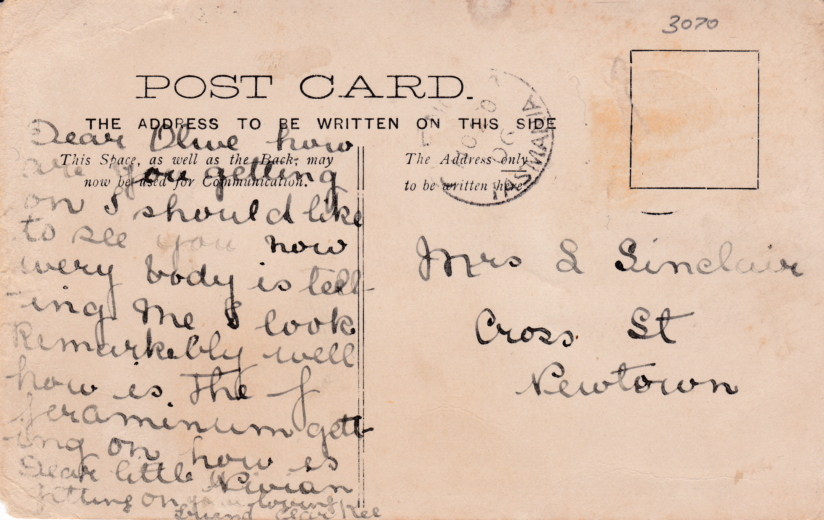 3070
POST CARD.
THE ADDRESS TO BE WRITTEN ON THIS SIDE
TASMANIA
This Space, as well as the Back, may
now be used for Communication.
The Address only
to be written here
Dear Olive how
are you getting
on I should like
to see you now
every body is tell-
-ing me I look
Remarkably well
how is The g
geraminum gett
ing on how is
Dear little Vivian
gitting on your loving
friend
Mrs S Sinclair
Cross St
Newtown